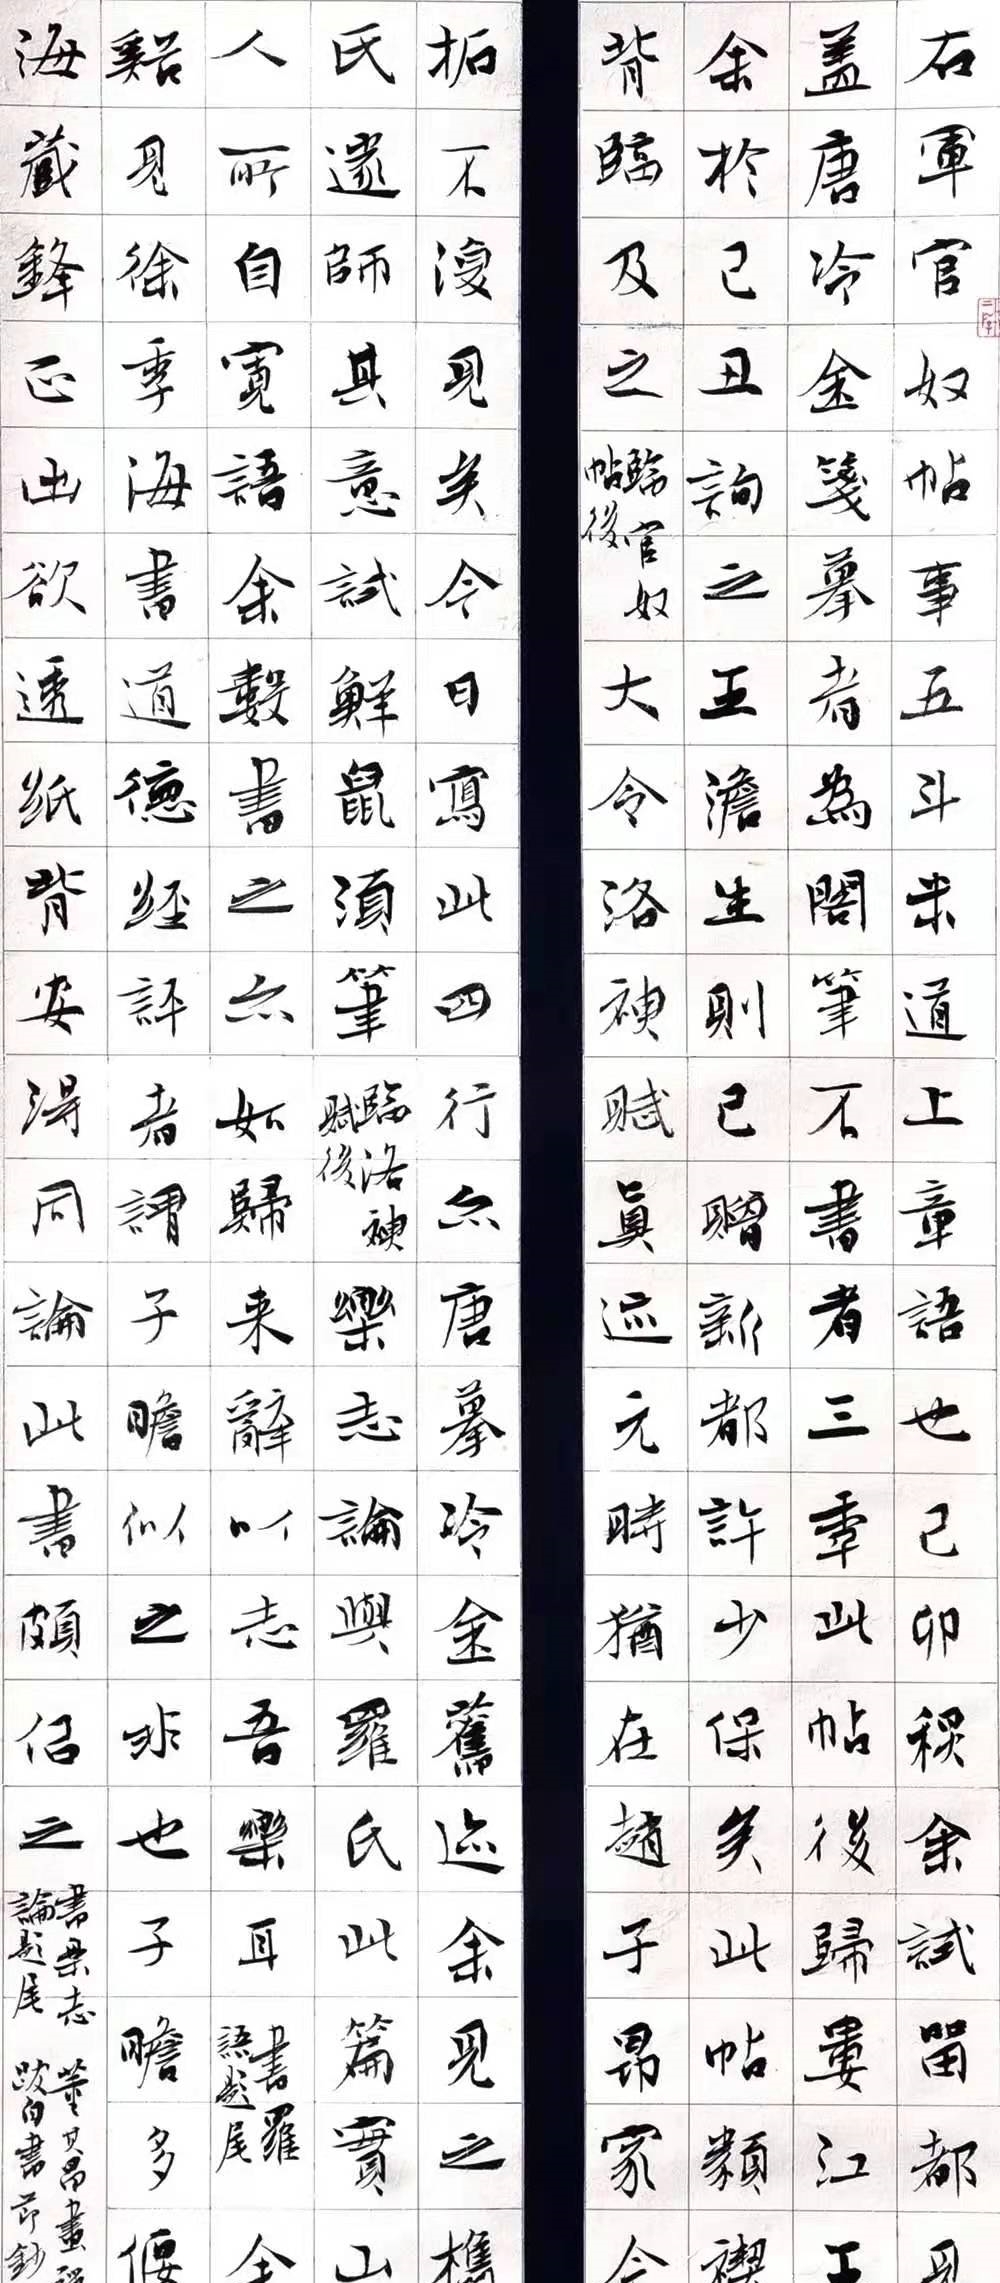 右軍官奴帖事五斗米道上章語也己卯秋余試留都見
蓋唐冷金箋摹者為閣筆不書者三季此帖後歸婁江王
余於己丑詢之王澹生則已贈新都許少保矣此帖類禊
背臨及之
臨官奴
帖後
大令洛神賦真迹元時猶在趙子昂家今
拓不復見矣今日寫此四行亦唐摹冷金舊迹余見之樵
氏遂師其意試鮮鼠須筆
臨洛神
賦後
樂志論與羅氏此篇實山
人所自寬語余數書之亦如歸來辭以志吾樂耳
書羅
語題尾
全
谿見徐季海書道德經評者謂子瞻似之非也子瞻多偃
海藏鋒正出欲透紙背安得同論此書頗侶之
書樂志
論題尾
董其昌畫禪
跋自書節鈔